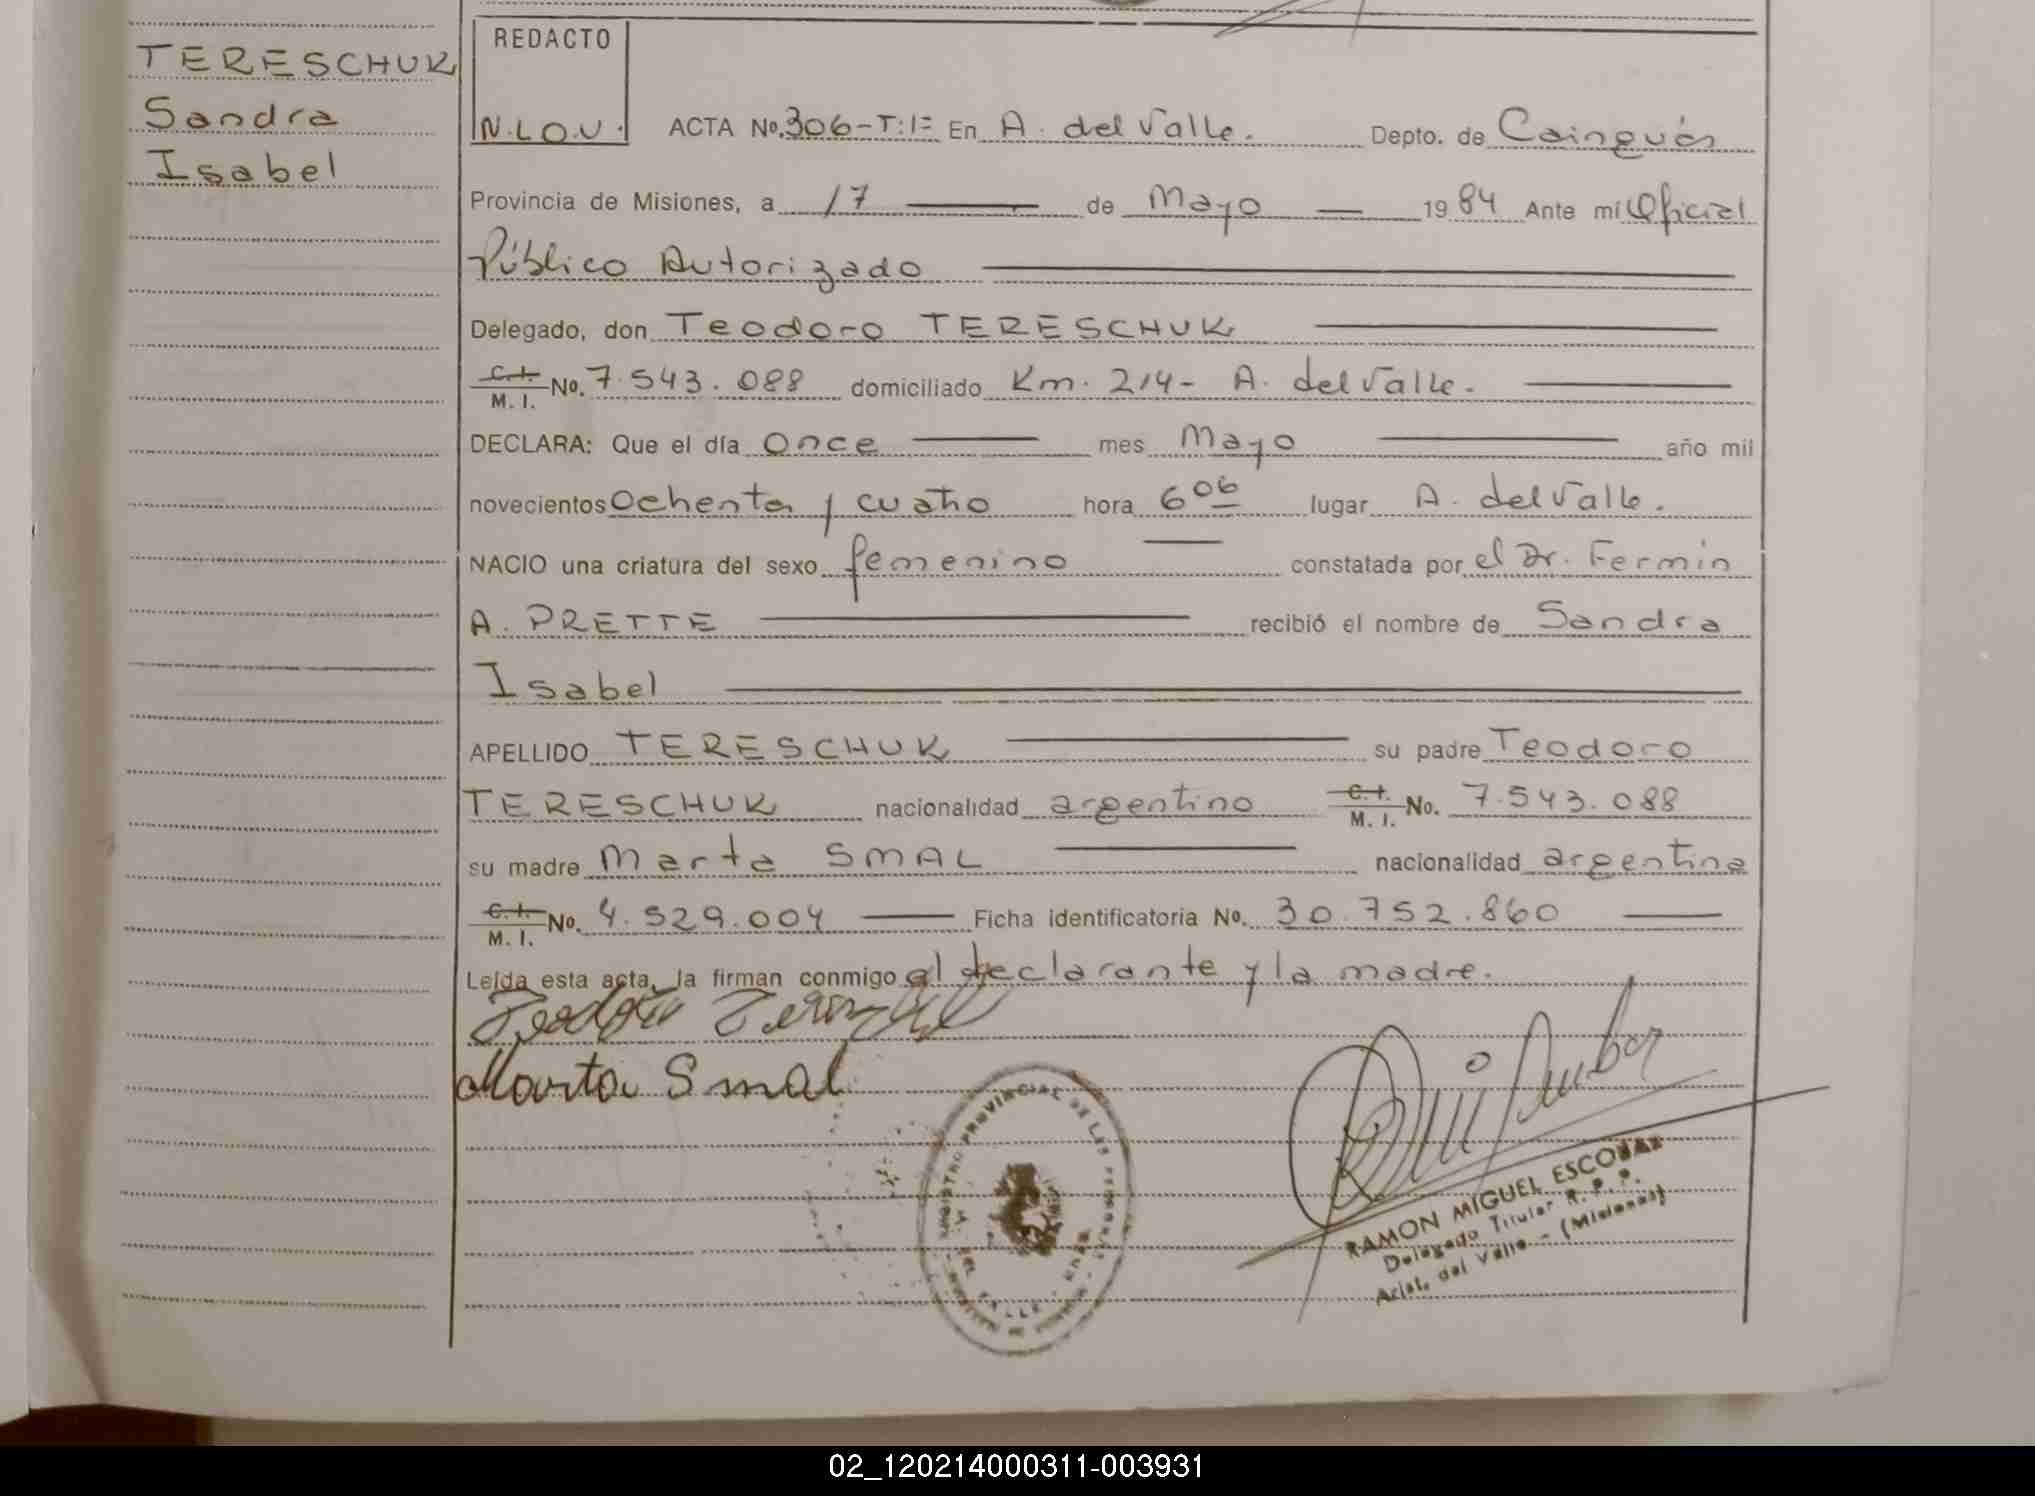 TERESCHUK
Sandra
Isabel
REDACTO
N.L.O.V.
ACTA No. 306-T:I= En A. del Valle. Depto. de Cainguás
Provincia de Misiones, a 17 de Mayo 1984 Ante mí Oficial
Público Autorizado
Delegado, don Teodoro TERESCHUK
C.I. M. I. No. 7.543.088 domiciliado Km. 214- A. del Valle.
DECLARA: Que el día Once mes Mayo año mil
novecientos Ochenta y cuatro hora 6 06 lugar A. del Valle.
NACIO una criatura del sexo femenino constatada por el Dr. Fermín
A. PRETTE recibió el nombre de Sandra
Isabel
APELLIDO TERESCHUK su padre Teodoro
TERESCHUK nacionalidad argentino C.I. M. I. No. 7.543.088
su madre Marta SMAL nacionalidad argentina
C.I. M. I. No. 4.529.004 Ficha identificatoria No. 30.752.860
Leída esta acta, la firman conmigo el declarante y la madre.
Teodoro
Marta Smal
REGISTRO PROVINCIAL DE LAS PERSONAS
DEL VALLE
RAMON MIGUEL ESCOBAR
Delegado Titular R. P. P.
Arist. del Valle - (Misiones)
02_120214000311-003931